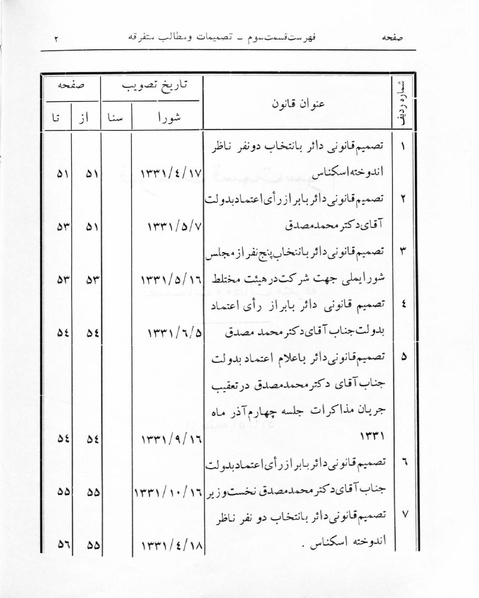 صفحه فهرست قسمت سوم - تصمیمات و مطالب متفرقه ٢
شماره ردیف عنوان قانون تاریخ تصویب صفحه
شورا سنا از تا
١ تصمیم قانونی دائر بانتخاب دو نفر ناظر
اندوخته اسکناس ١٣٣١/٤/١٧ ٥١ ٥١
٢ تصمیم قانونی دائر بابراز رأی اعتماد بدولت
آقای دکتر محمد مصدق ١٣٣١/٥/٧ ٥١ ٥٣
٣ تصمیم قانونی دائر بانتخاب پنج نفر از مجلس
شورایملی جهت شرکت در هیئت مختلط ١٣٣١/٥/١٦ ٥٣ ٥٣
٤ تصمیم قانونی دائر بابراز رأی اعتماد
بدولت جناب آقای دکتر محمد مصدق ١٣٣١/٦/٥ ٥٤ ٥٤
٥ تصمیم قانونی دائر باعلام اعتماد بدولت
جناب آقای دکتر محمد مصدق در تعقیب
جریان مذاکرات جلسه چهارم آذر ماه
١٣٣١ ١٣٣١/٩/١٦ ٥٤ ٥٤
٦ تصمیم قانونی دائر بابراز رأی اعتماد بدولت
جناب آقای دکتر محمد مصدق نخست وزیر ١٣٣١/١٠/١٦ ٥٥ ٥٥
٧ تصمیم قانونی دائر بانتخاب دو نفر ناظر
اندوخته اسکناس . ١٣٣١/٤/١٨ ٥٥ ٥٦